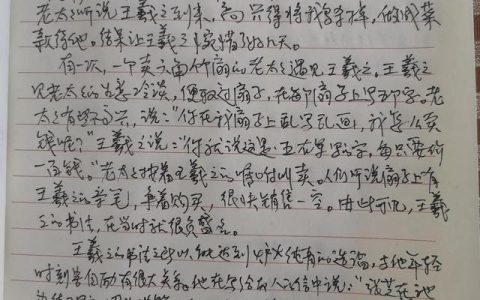 老太太听说王羲之到来,高兴得将鹅杀掉,做成菜
款待他。结果让王羲之惋惜了好几天。
有一次,一个卖六角竹扇的老太太遇见王羲之。王羲之
见老太太的生意冷淡,便取过扇子,在每个扇子上写五个字。老
太太有些不高兴,说:“你在我扇子上乱写乱画,我怎么卖
钱呢?”王羲之说:“你就说这是王右军的字,每只要价
一百钱。”老太太按着王羲之的吩咐叫卖。人们听说扇子上有
王羲之的亲笔,争着购买,很快销售一空。由此可见,王羲
之的书法,在当时就很负盛名。
王羲之的书法之所以 达到 的造诣,与他年轻
时刻苦自励有很大关系。他在写给友人的信中说:“张芝在池